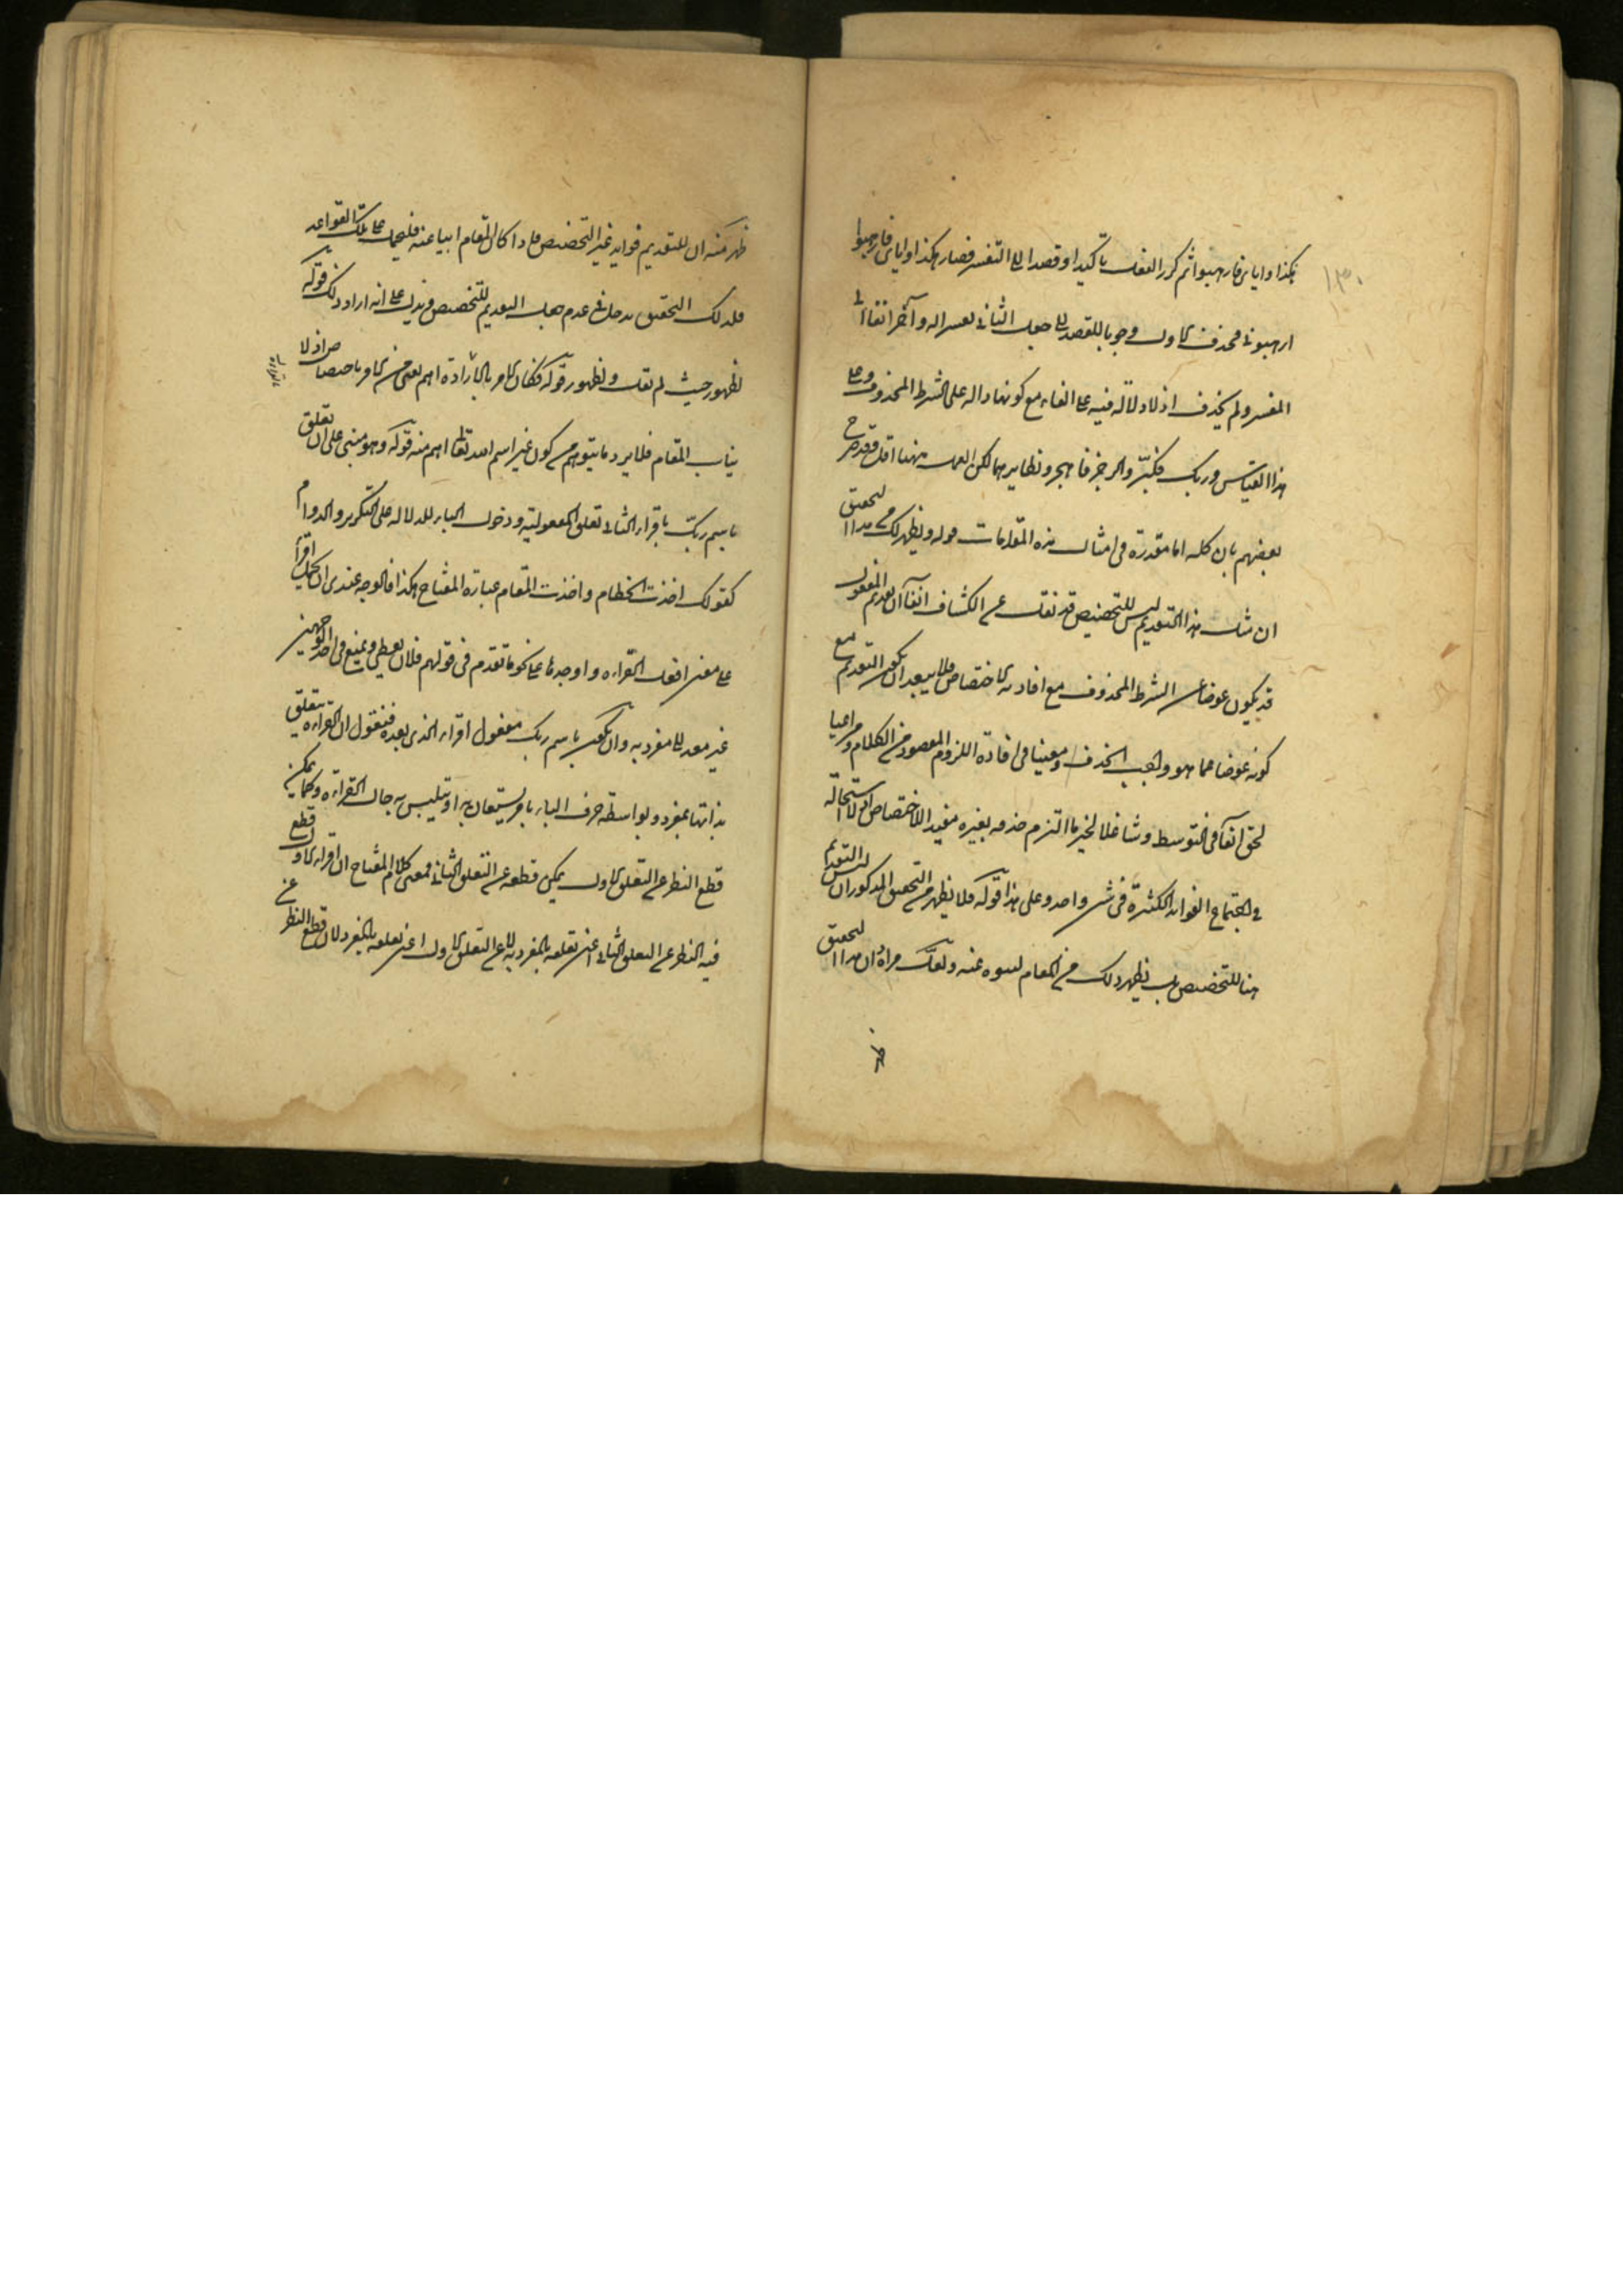 ١٣٠
هكذا واياي فارهبوا ثم كرر الفعل تأكيدا وقصدا الى التفسير فصار هكذا واياي فارهبوا
ارهبوني فحذف الاول وجوبا للقصد الى جعل الثاني تفسيرا له وآخر
المفسر ولم يحذف اذ لا دلالة فيه على الفاء مع كونها دالة على الشرط المحذوف وعلى
هذا القياس وربك فكبّر والرجز فاهجر ونظايرهما لكن العمل ههنا اقل فقد صرح
بعضهم بان كلمة اما مقدرة في امثال هذه المقامات قوله ويظهر لك من هذا التحقيق
ان مثل هذا التقديم ليس للتخصيص قد نقل عن الكشاف انفا ان تقديم المفعول
قد يكون عوضا عن الشرط المحذوف مع افادته الاختصاص فلا يبعد ان يكون التقديم مع
كونه عوضا عما هو واجب الحذف ومعينا في افادة اللزوم المقصود من الكلام ومراعيا
لحق الفاء في التوسط وشاغلا لحيز ما التزم حذفه بغيره مفيدا للاختصاص اذ لا استحالة
في اجتماع الفوائد الكثيرة في شيء واحد وعلى هذا قوله فلا يظهر من التحقيق المذكور ان ليس التقديم
هنا للتخصيص بل يظهر ذلك من المقام لنبوه عنه ولعل مراده ان هذا التحقيق
ظهر
ظهر منه ان للتقديم فوايد غير التخصيص فاذا كان المقام ابيا عنه فليحمل على تلك القواعد
فلذلك التحقيق مدخل في عدم جعل التقديم للتخصيص ويدل على انه اراد ذلك قوله
لظهور حيث لم يقل ويظهور قوله فكان الامر بالقراءة اهم يعني من الامر باختصاص اذ لا
يناسب المقام فلا يرد ما يتوهم من كون غير اسم الله تعالى اهم منه قوله وهو مبني على ان تعلق
باسم ربك باقرأ الثاني تعلق المفعولية ودخول الباء للدلالة على التكرير والدوام
كقولك اخذت الخطام واخذت بالخطام عبارة المفتاح هكذا فالوجه عندي ان يحمل اقرأ
على معنى افعل القراءة واوجدها على نحو ما تقدم في قولهم فلان يعطي ويمنع في احد الوجهين
غير معدى الى مقروء به وان يكون باسم ربك مفعول اقرأ الذي بعده فنقول ان القراءة يتعلق
بذاتها بمقروء وبواسطة حرف الباء بامر يستعان به او يتلبس به حال القراءة وكما يمكن
قطع النظر عن التعلق الاول يمكن قطعه عن التعلق الثاني فمعنى كلام المفتاح ان اقرأ الاول قطع
فيه النظر عن التعلق الثاني اعني تعلقه بالمقروء به لا عن التعلق الاول اعني تعلقه بالمقروء لان قطع النظر عن